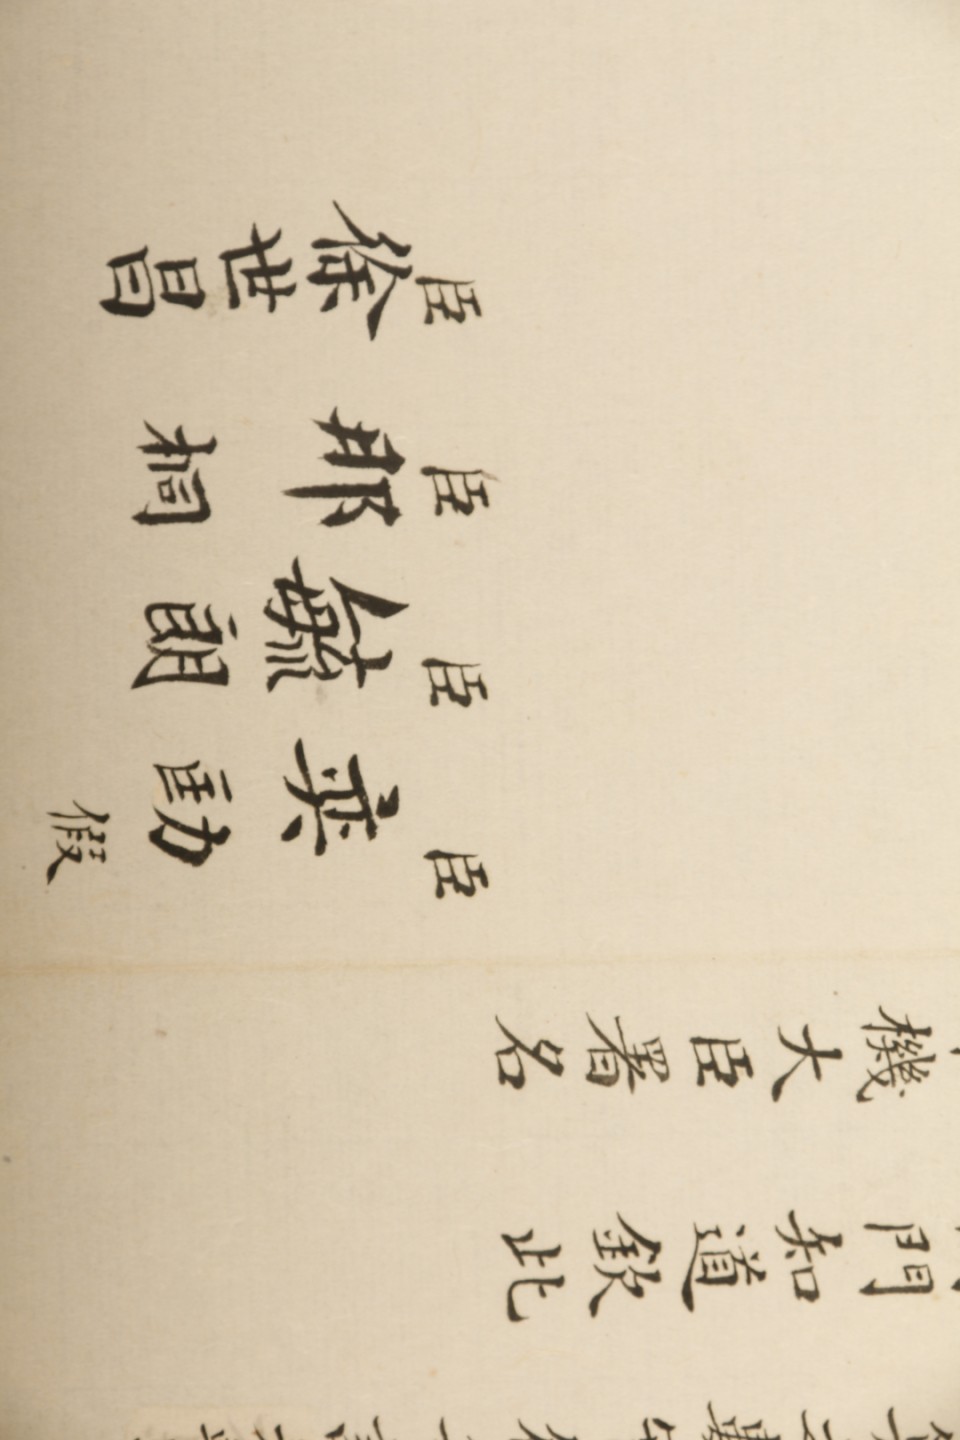 門知道欽此
機大臣署名
臣奕劻假
臣毓朗
臣那桐
臣徐世昌